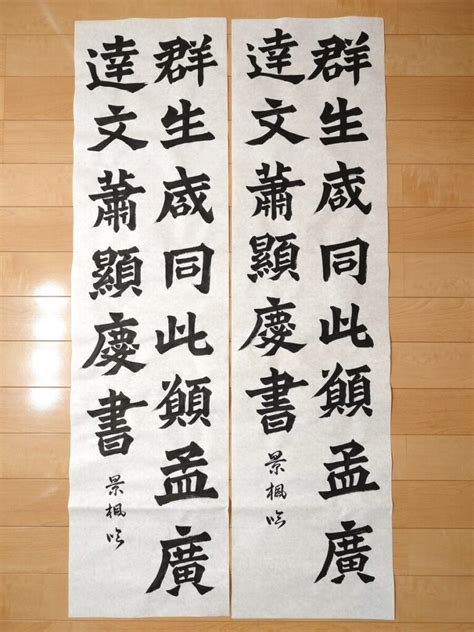 群生咸同此願孟廣
達文蕭顯慶書
景楓臨
群生咸同此願孟廣
達文蕭顯慶書
景楓臨